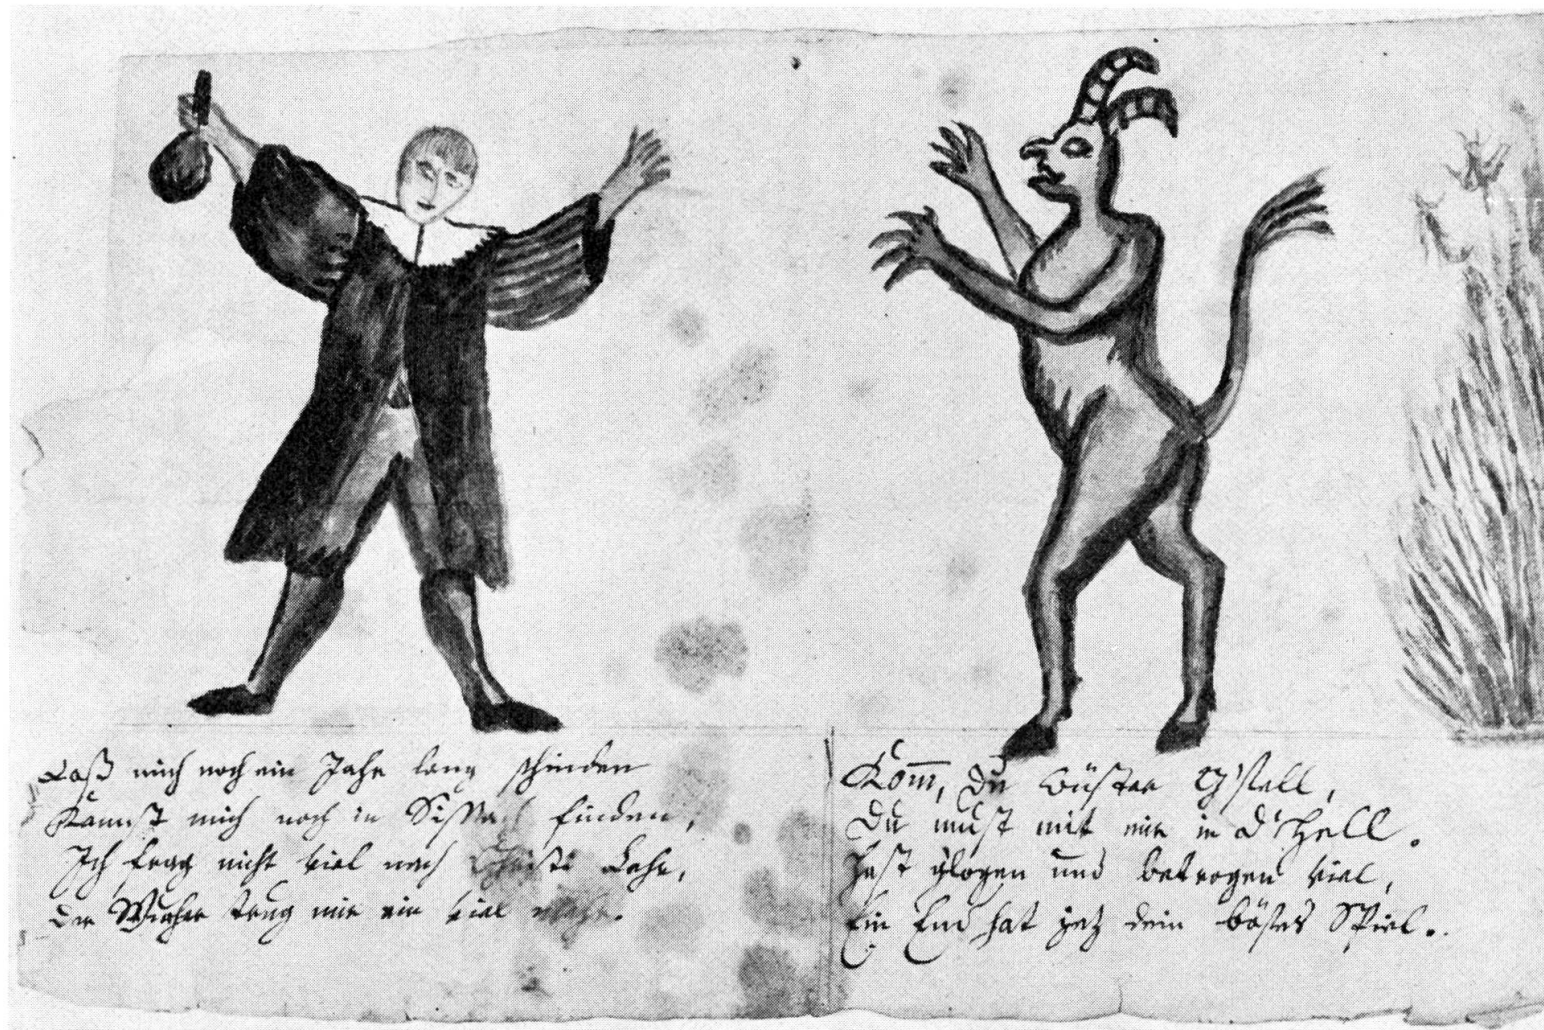 Laß mich noch ein Jahr lang schinden
Kannst mich noch in Sissach finden,
Ich frag nicht viel nach Christi Lehr,
Der Wucher trug mir ein viel mehr.
Komm, Du wüster G'stell,
Du must mit mir in d'Hell.
Hast glogen und betrogen viel,
Ein End hat jetz dein böses Spiel.